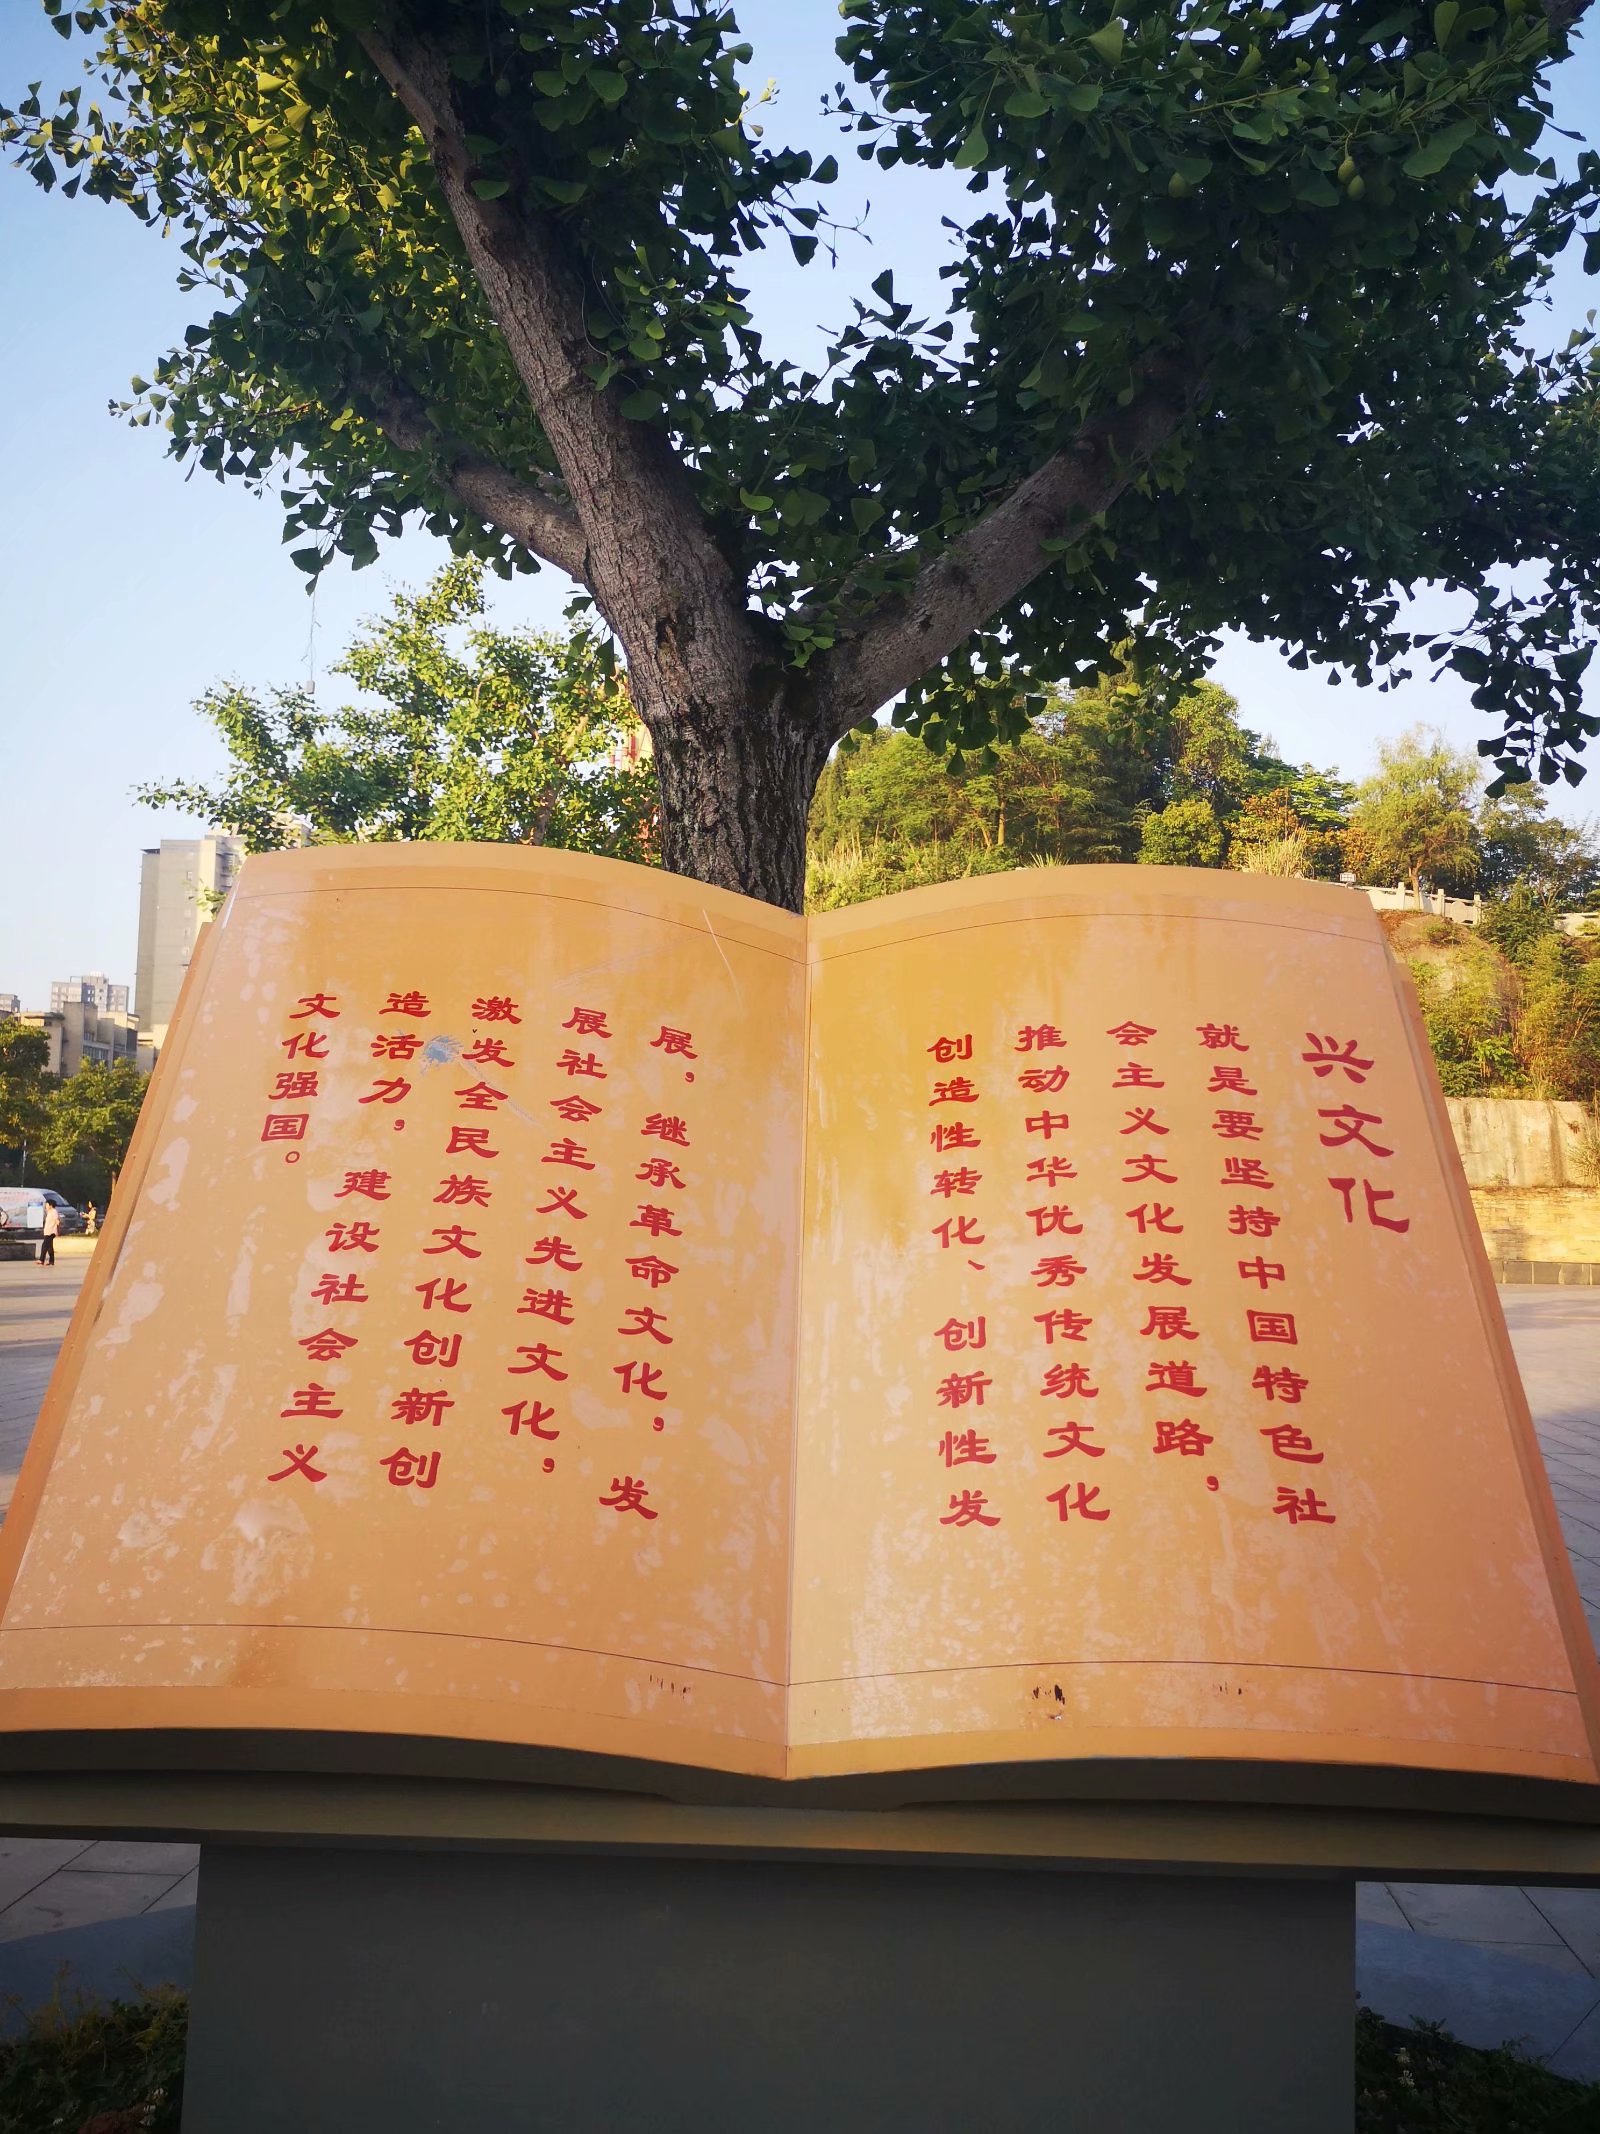 兴文化
就是要坚持中国特色社
会主义文化发展道路，
推动中华优秀传统文化
创造性转化、创新性发
展，继承革命文化，发
展社会主义先进文化，
激发全民族文化创新创
造活力，建设社会主义
文化强国。